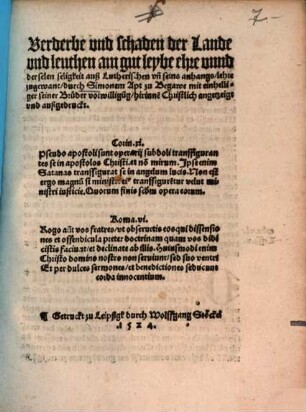 7-
Verderbe und schaden der Lande
und leuthen am gut leybe ehre unnd
der selen seligkeit auß Lutherischen vñ seins anhangs/lehre
zugewant/durch Simonem Apt zu Begaw mit einhelli-
ger seiner Brüder vorwilligũg/hirinne Christlich angezeigt
und außgedruckt.
Corin.xi.
Pseudo apostoli sunt operarij subdoli transfiguran
tes se in apostolos Christi.et nõ mirum. Ipse enim
Satanas transfigurat se in angelum lucis. Non est
ergo magnũ si ministri eius transfigurẽtur velut mi-
nistri iusticie. Quorum finis scdm opera eorum.
Roma.vi.
Rogo aũt vos fratres/vt obseruetis eos qui dissensio
nes et offendicula preter doctrinam quam vos didi
cistis faciũt/et declinate ab illis. Huiusmodi enim
Christo domino nostro non seruiunt/sed suo ventri
Et per dulces sermones/et benedictiones seducunt
corda innocentium.
¶ Getruckt zu Leipszgk durch Wolffgang Stöckel
1524.